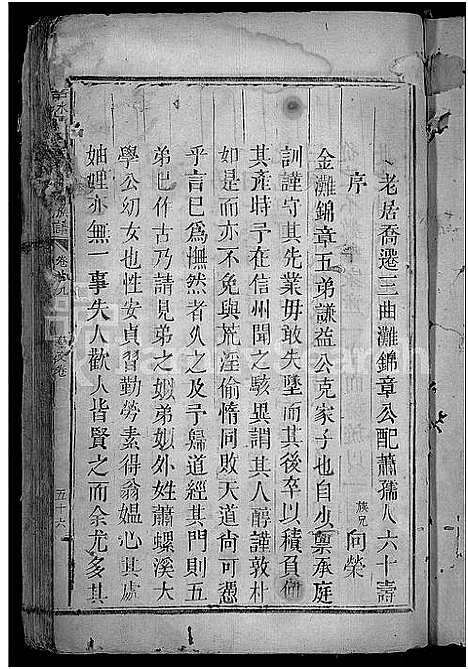 老居喬遷三曲灘錦章公配蕭孺人六十壽
序
族兄向榮
金灘錦章五弟謙益公克家子也自少稟承庭
訓謹守其先業毋敢失墜而其後卒以積負傾
其產時予在信州聞之駭異謂其人醇謹敦朴
如是而亦不免與荒淫偷惰同敗天道尚可憑
乎言已為憮然者久之及予歸道經其門則五
弟已作古乃請見弟之嫂弟嫂外姓蕭螺溪大
學公幼女也性安貞習勤勞素得翁媼心其處
妯娌亦無一事失人歡人皆賢之而余尤多其
卷廿九
五十六